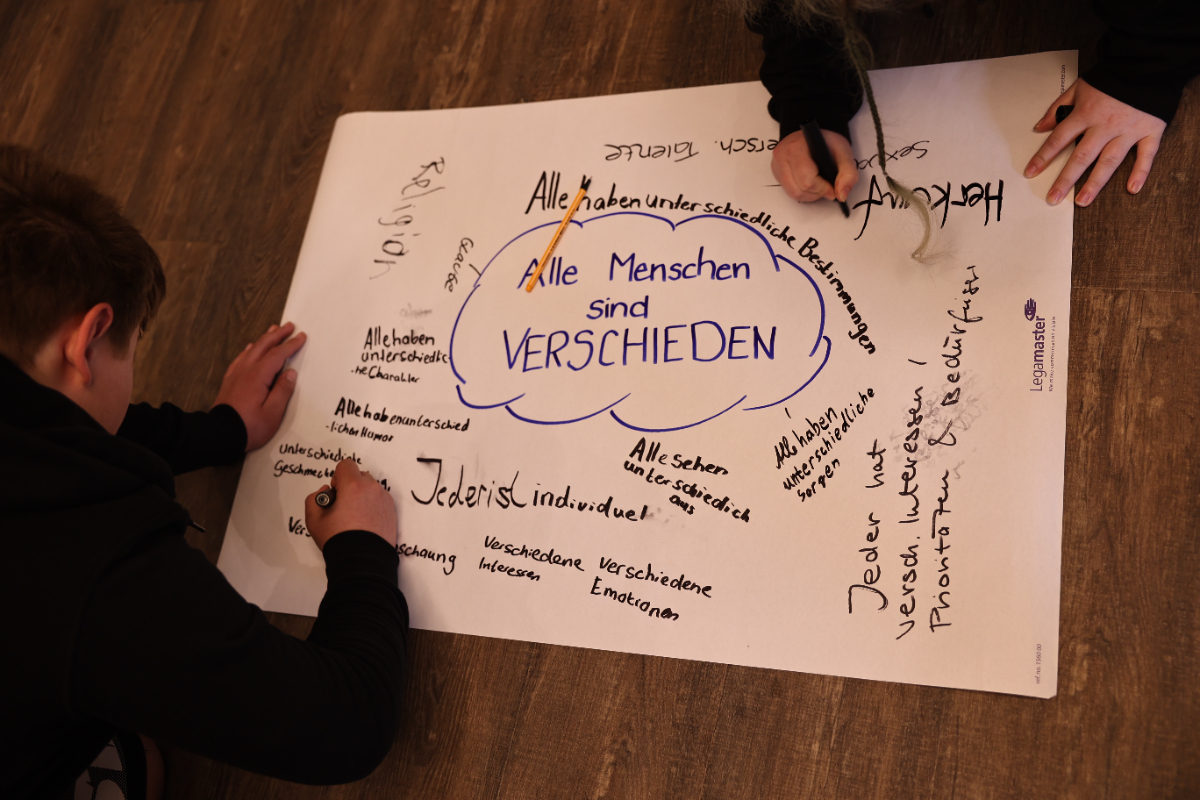 Alle Menschen
sind
VERSCHIEDEN
Alle haben unterschiedliche Bestimmungen
versch. Talente
Herkunf
Religion
Glaube
Alle haben
unterschiedlic-
-he Charakter
Alle haben unterschied
-lichen Humor
unterschiedliche
Geschmäcker
Jeder ist individuel
Alle sehen
unterschiedlich
aus
Alle haben
unterschiedliche
sorgen
Verschiedene
Interessen
Verschiedene
Emotionen
Jeder hat
versch. Interessen /
Prioritäten & Bedürfnisse
Legamaster